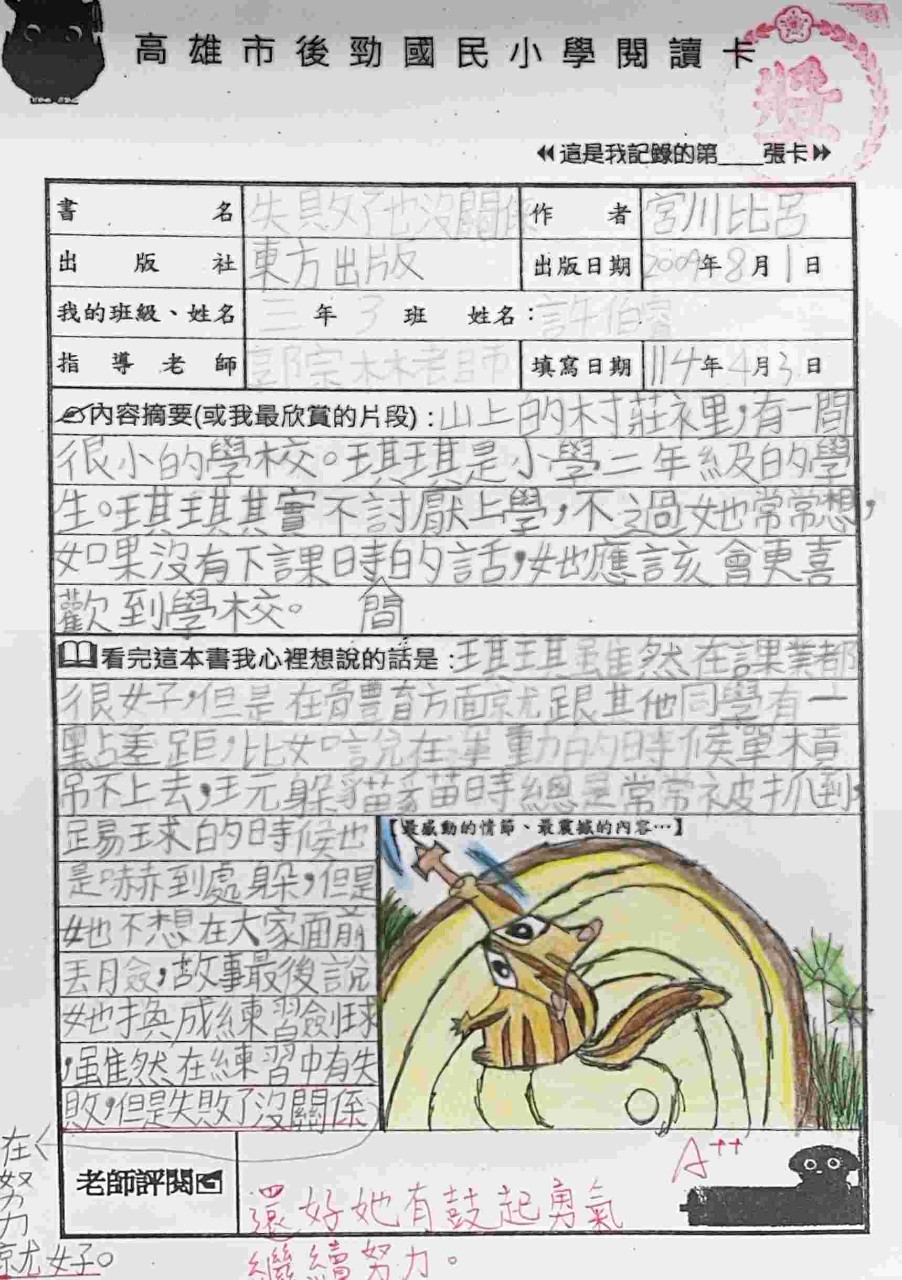 高雄市後勁國民小學閱讀卡
獎
這是我記錄的第____張卡
書名 失敗了也沒關係 作者 宮川比呂
出版社 東方出版 出版日期 2009年8月1日
我的班級、姓名 三年3班 姓名：許伯睿
指導老師 郭宗林老師 填寫日期 114年4月3日
內容摘要(或我最欣賞的片段)：山上的村莊裡，有一間
很小的學校。琪琪是小學二年級的學
生。琪琪其實不討厭上學，不過她常常想，
如果沒有下課時的話，她應該會更喜
歡到學校。 間
看完這本書我心裡想說的話是：琪琪雖然在課業都
很好，但是在體育方面就跟其他同學有一
點差距，比如說在運動的時候單槓
吊不上去，玩躲貓貓時總是常常被抓到，
踢球的時候也
是嚇到處躲，但是
她不想在大家面前
丟臉，故事最後說
她換成練習撿球
，雖然在練習中有失
敗，但是失敗了沒關係
在
努
力
就好。
【最感動的情節、最震撼的內容…】
老師評閱
A++
還好她有鼓起勇氣
繼續努力。